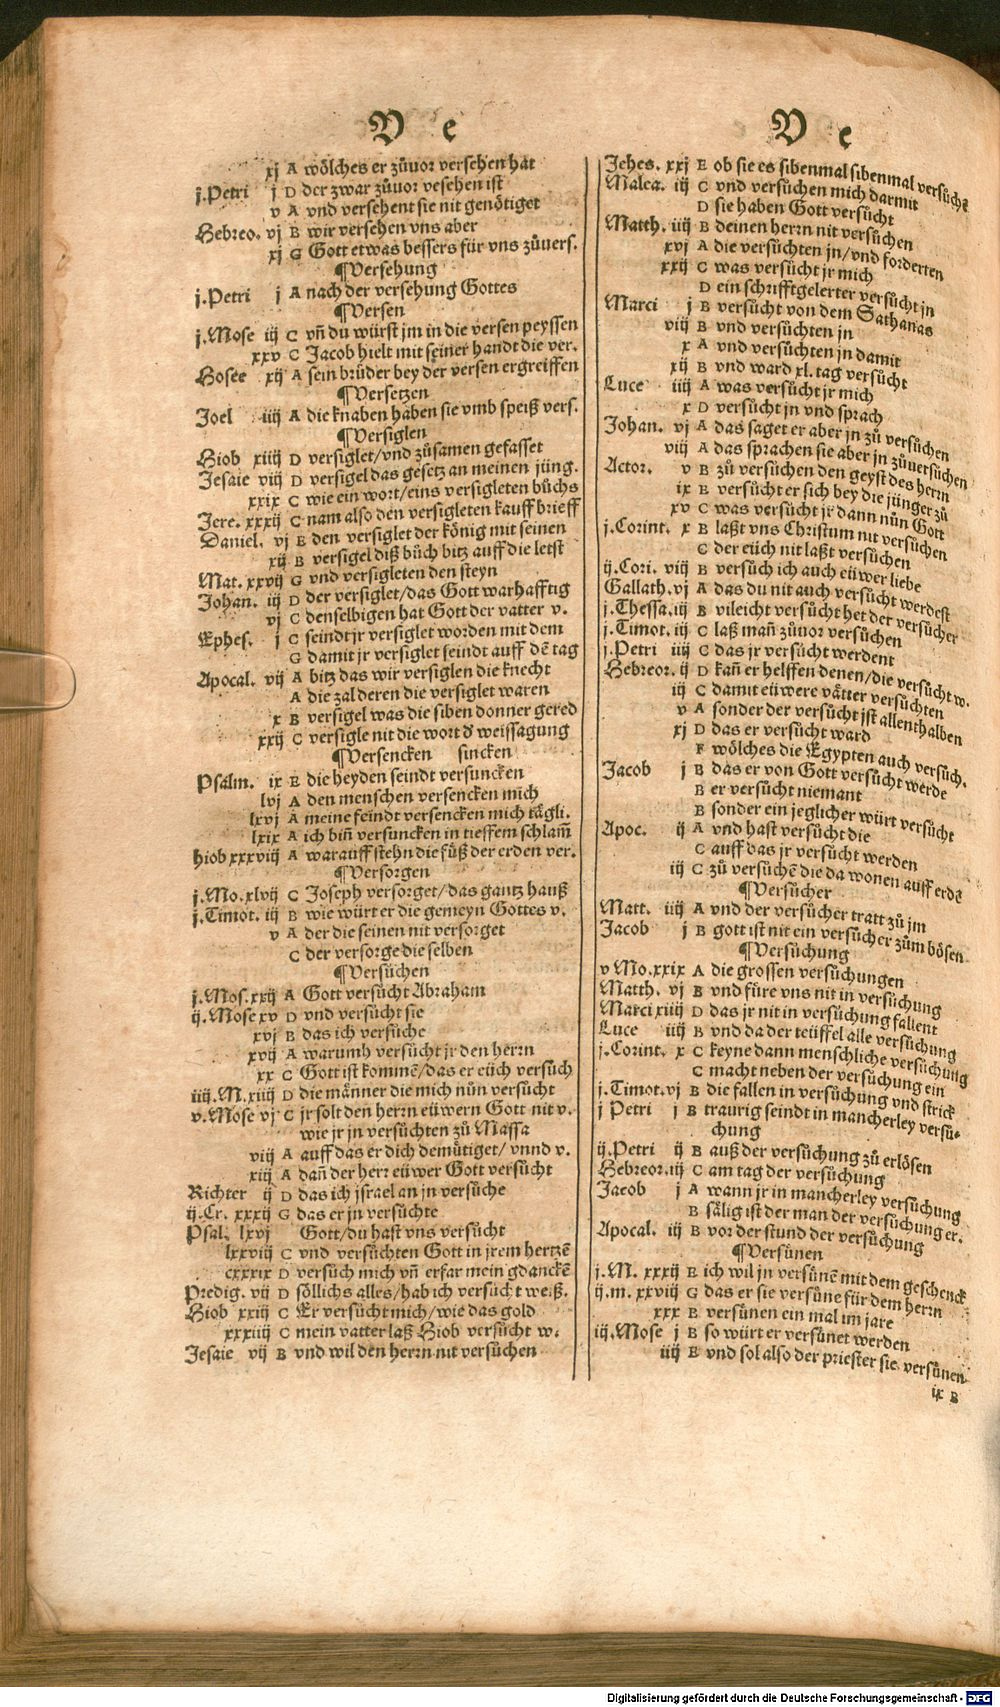 V e
xj A wölches er zůuor versehen hat
j.Petri j D der zwar zůuor vesehen ist
v A vnd versehent sie nit genötiget
Hebreo. vj B wir versehen vns aber
xj G Gott etwas bessers für vns zůuers.
¶Versehung
j.Petri j A nach der versehung Gottes
¶Versen
j.Mose iij C vñ du würst jm in die versen peyssen
xxv C Jacob hielt mit seiner handt die ver.
Hosee xij A sein brüder bey der versen ergreiffen
¶Versetzen
Joel iiij A die knaben haben sie vmb speiß vers.
¶Versiglen
Hiob xiiij D versiglet/vnd zůsamen gefasset
Jesaie viij D versigel das gesetz an meinen jüng.
xxix C wie ein wort/eins versigleten bůchs
Jere. xxxij C nam also den versigleten kauffbrieff
Daniel. vj E den versiglet der könig mit seinen
xij B versigel diß bůch bitz auff die letst
Mat. xxvij G vnd versigleten den steyn
Johan. iij D der versiglet/das Gott warhafftig
vj C denselbigen hat Gott der vatter v.
Ephes. j C seindt jr versiglet worden mit dem
G damit jr versiglet seindt auff dẽ tag
Apocal. vij A bitz das wir versiglen die knecht
A die zal deren die versiglet waren
x B versigel was die siben donner gered
xxij C versigle nit die wort đ weissagung
¶Versencken sincken
Psalm. ix E die heyden seindt versuncken
lvj A den menschen versencken mich
lxvj A meine feindt versencken mich tägli.
lxix A ich biñ versuncken in tieffem schlam̃
hiob xxxviij A warauff stehn die füß der erden ver.
¶Versorgen
j.Mo.xlvij C Joseph versorget/das gantz hauß
j.Timot. iij B wie würt er die gemeyn Gottes v.
v A der die seinen nit versorget
C der versorge die selben
¶Versůchen
j.Mos.xxij A Gott versůcht Abraham
ij.Mose xv D vnd versůcht sie
xvj B das ich versůche
xvij A warumb versůcht jr den herrn
xx C Gott ist kommẽ/das er eüch versůch
iiij.M.xiiij D die männer die mich nůn versůcht
v.Mose vj C jr solt den herrn eüwern Gott nit v.
wie jr jn versůchten zů Massa
viij A auff das er dich demütiget/vnnd v.
xiij A dañ der herr eüwer Gott versůcht
Richter ij D das ich jsrael an jn versůche
ij.Cr. xxxij G das er jn versůchte
Psal. lxvj Gott/du hast vns versůcht
lxxviij C vnd versůchten Gott in jrem hertzẽ
cxxxix D versůch mich vñ erfar mein gdanckẽ
Predig. vij D söllichs alles/hab ich versůcht weiß.
Hiob xxiij C Er versůcht mich/wie das gold
xxxiiij C mein vatter laß Hiob versůcht w.
Jesaie vij B vnd wil den herrn nit versůchen
V e
Jehes. xxj E ob sie es sibenmal sibenmal versůchẽ
Malea. iij C vnd versůchen mich darmit
D sie haben Gott versůcht
Matth. iiij B deinen herrn nit versůchen
xvj A die versůchten jn/vnd forderten
xxij C was versůcht jr mich
D ein schrifftgelerter versůcht jn
Marci j B versůcht von dem Sathanas
viij B vnd versůchten jn
x A vnd versůchten jn damit
xij B vnd ward xl. tag versůcht
Luce iiij A was versůcht jr mich
x D versůcht jn vnd sprach
Johan. vj A das saget er aber jn zů versůchen
viij A das sprachen sie aber jn zůuersůchen
Actor. v B zů versůchen den geyst des herrn
ix E versůcht er sich bey die jünger zů
xv C was versůcht jr dann nůn Gott
j.Corint. x B laßt vns Christum nit versůchen
C der eüch nit laßt versůchen
ij.Cori. viij B versůch ich auch eüwer liebe
Gallath.vj A das du nit auch versůcht werdest
j.Thessa.iij B vileicht versůcht het der versůcher
j.Timot. iij C laß mañ zůuor versůchen
j.Petri iiij C das jr versůcht werdent
Hebreor. ij D kañ er helffen denen/die versůcht w.
iij C damit eüwere vätter versůchten
v A sonder der versůcht jst allenthalben
xj D das er versůcht ward
F wölches die Egypten auch versůch.
Jacob j B das er von Gott versůcht werde
B er versůcht niemant
B sonder ein jeglicher würt versůcht
Apoc. ij A vnd hast versůcht die
C auff das jr versůcht werden
iij C zů versůchẽ die da wonen auff erdẽ
¶Versůcher
Matt. iiij A vnd der versůcher tratt zů jm
Jacob j B gott ist nit ein versůcher zům bösen
¶Versůchung
v Mo.xxix A die grossen versůchungen
Matth. vj B vnd füre vns nit in versůchung
Marci xiiij D das jr nit in versůchung fallent
Luce iiij B vnd da der teüffel alle versůchung
j.Corint. x C keyne dann menschliche versůchung
C macht neben der versůchung ein
j.Timot.vj B die fallen in versůchung vnd strick
j Petri j B traurig seindt in mancherley versů-
chung
ij.Petri ij B auß der versůchung zů erlösen
Hebreor.iij C am tag der versůchung
Jacob j A wann jr in mancherley versůchung
B sälig ist der man der versůchung er.
Apocal. iij B vor der stund der versůchung
¶Versünen
j.M. xxxij E ich wil jn versünẽ mit dem geschenck
ij.m. xxviij G das er sie versüne für dem herrn
xxx B versünen ein mal im jare
iij.Mose j B so würt er versünet werden
iiij E vnd sol also der priester sie versünen
ix B
Digitalisierung gefördert durch die Deutsche Forschungsgemeinschaft - DFG